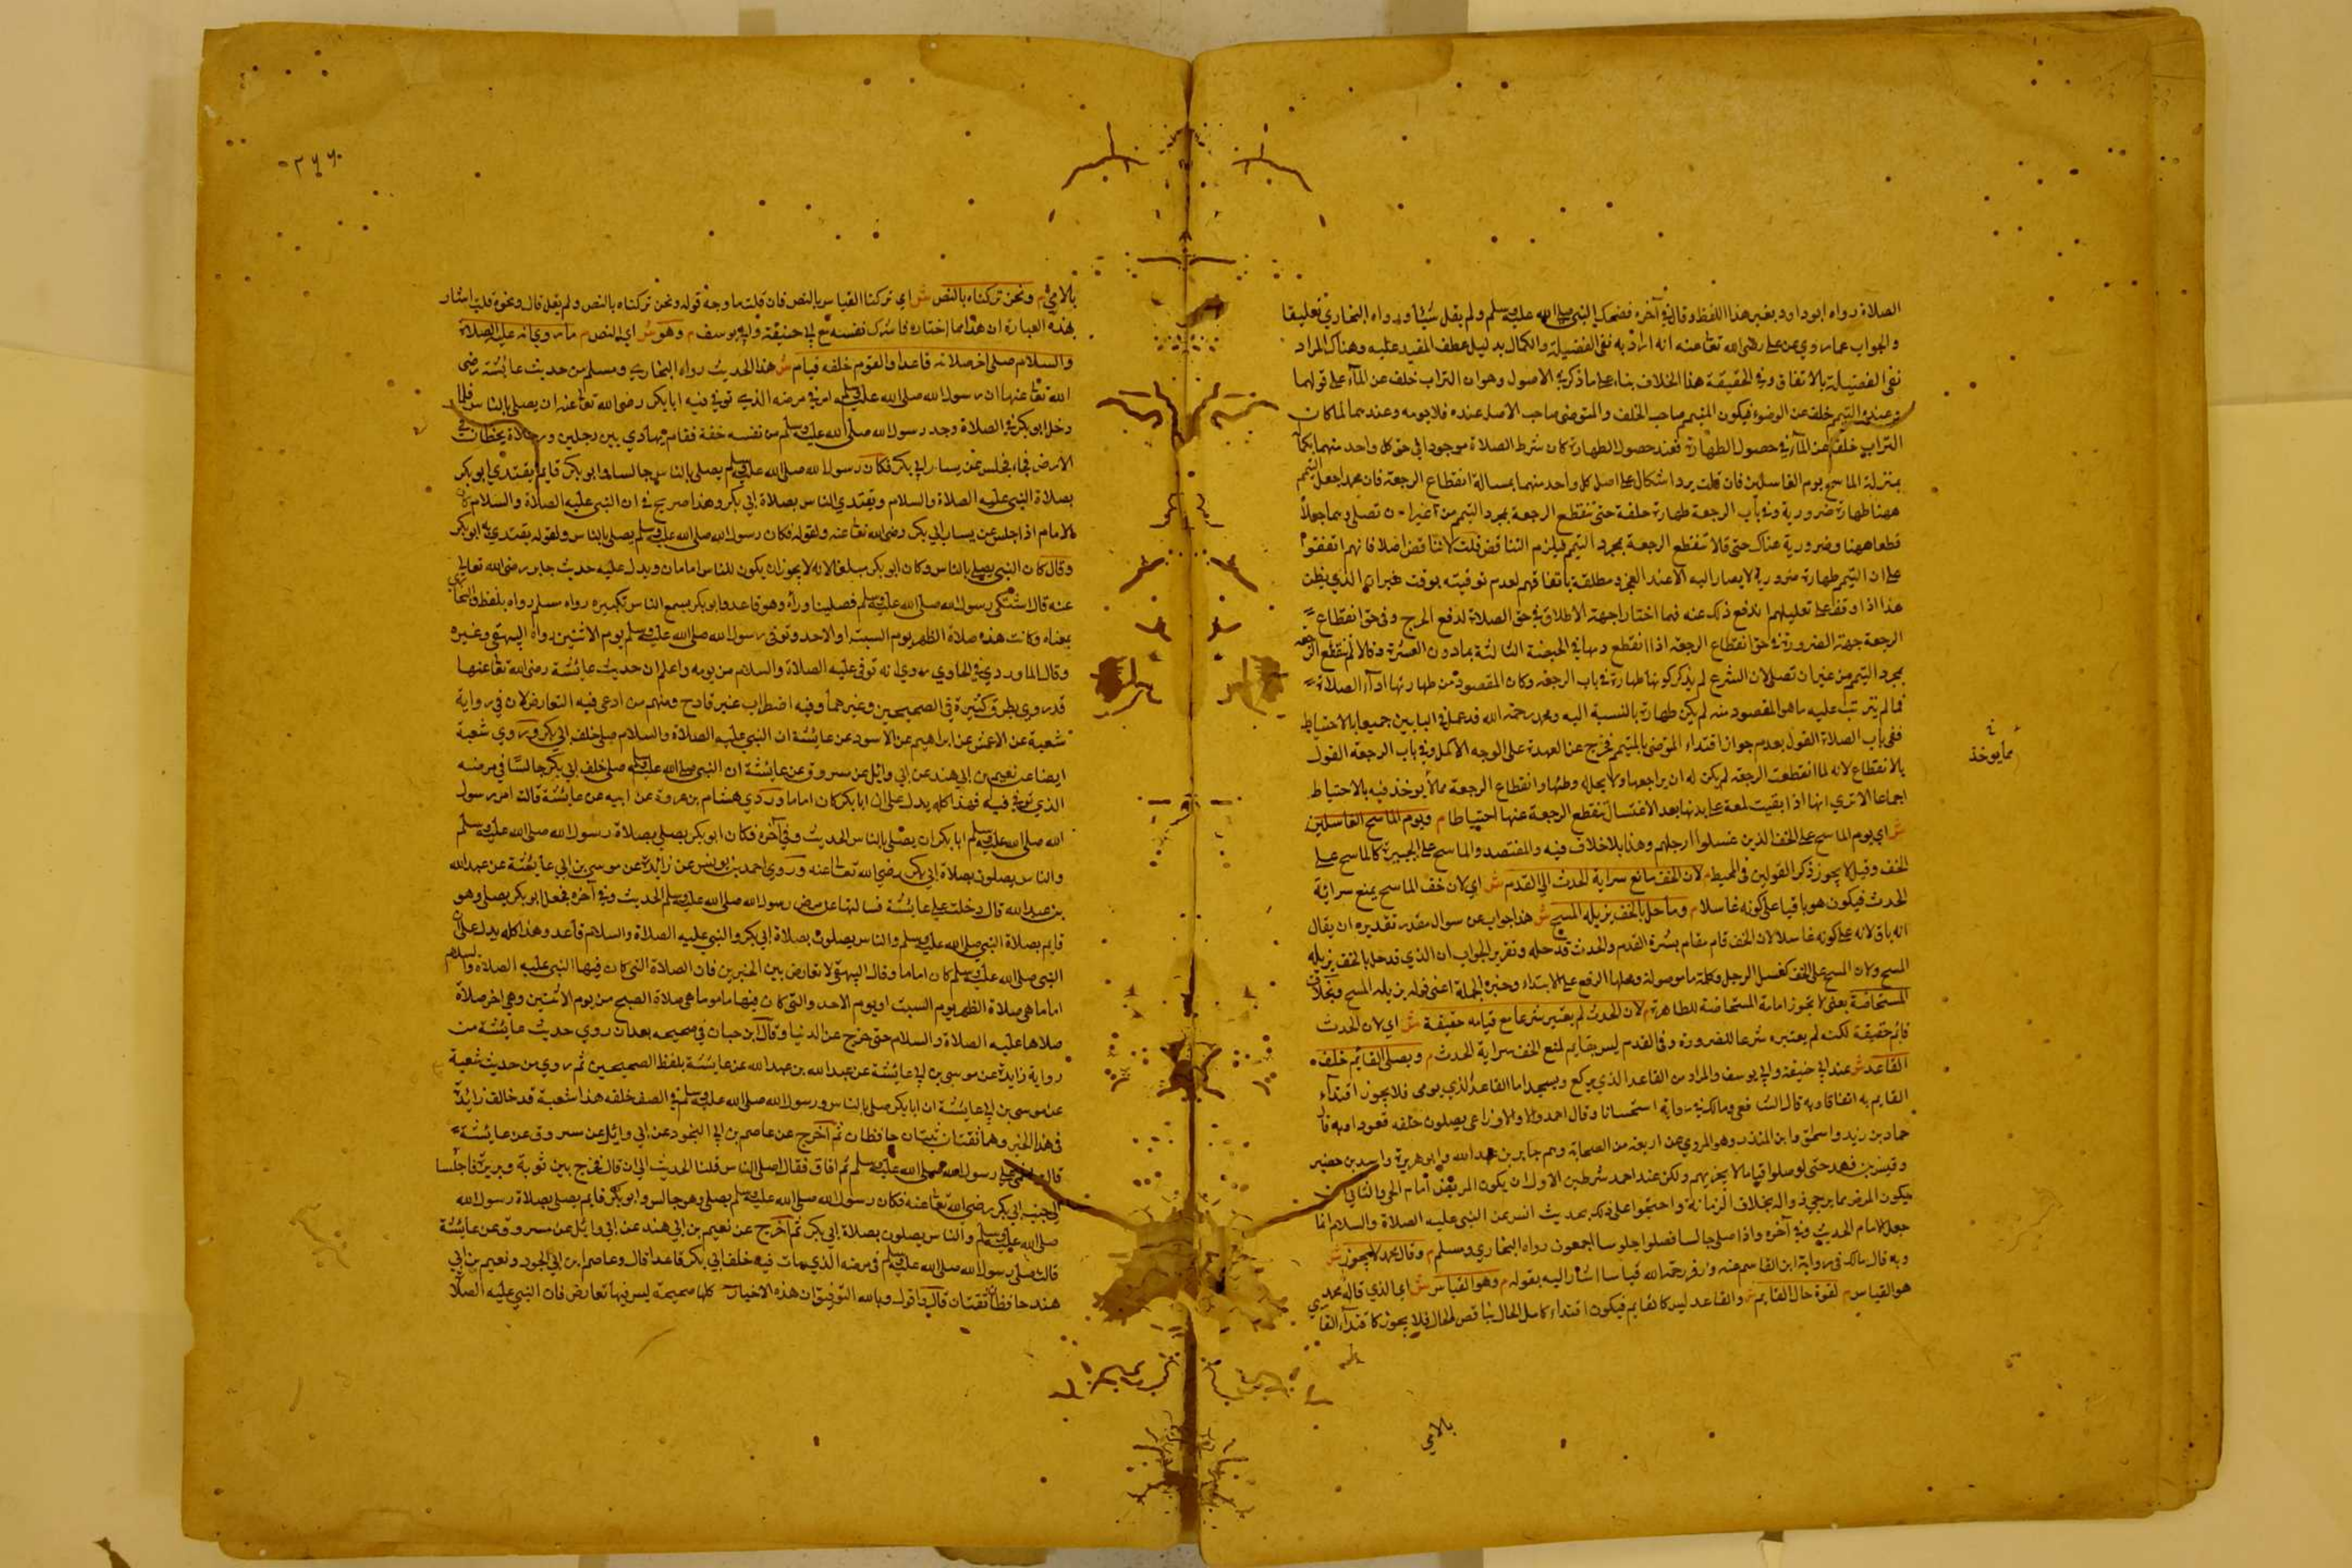 الصلاة رواه ابو داود بغير هذا اللفظ وقال في آخره فضحك النبي صلى الله عليه وسلم ولم يقل شيئا ورواه البخاري تعليقا
والجواب عما روي عن علي رضي الله تعا عنه انه اراد به نفي الفضيلة والكمال بدليل عطف المقيد عليه وهناك المراد
نفي الفضيلة بالاتفاق وفي الحقيقة هذا الخلاف بناء على ما ذكر في الاصول وهو ان التراب خلف عن الماء على قولهما
وعنده التيمم خلف عن الوضوء فيكون المتيمم صاحب الخلف والمتوضي صاحب الاصل عنده فلا يومه وعندهما لما كان
التراب خلفا عن الماء في حصول الطهارة فعند حصول الطهارة كان شرط الصلاة موجودا في حق كل واحد منهما بكماله
بمنزلة الماسح يوم الغاسلين فان قلت يرد اشكال على اصل كل واحد منهما بمسالة انقطاع الرجعة فان محمدا جعل التيمم
ههنا طهارة ضرورية وفي باب الرجعة طهارة حتى تنقطع الرجعة بمجرد التيمم من غير ان تصلي وهما جعلا
قطعا ههنا وضرورية هناك حتى قالا تنقطع الرجعة بمجرد التيمم فيلزم التناقض قلت لا تناقض اصلا فانهم اتفقوا
على ان التيمم طهارة ضرورية لا يصار اليه الا عند العجز ومطلقة باتفاقهم لعدم توقيته بوقت غير ان الذي يظن
هذا اذا وقف على تعليلهم اندفع ذلك عنه فهما اختارا جهة الاطلاق في حق الصلاة لدفع الحرج وفي حق انقطاع
الرجعة جهة الضرورة في حق انقطاع الرجعة اذا انقطع دمها في الحيضة الثالثة بما دون العشرة وقالا لم تنقطع الرجعة
بمجرد التيمم من غير ان تصلي لان الشرع لم يذكر كونها طهارة في باب الرجعة وكان المقصود من طهارتها اداء الصلاة
فما لم يترتب عليه ما هو المقصود منه لم يكن طهارة بالنسبة اليه ومحمد رحمة الله قد عمل في البابين جميعا بالاحتياط
ففي باب الصلاة القول بعدم جواز اقتداء المتوضي بالمتيمم فخرج عن العهدة على الوجه الاكمل وفي باب الرجعة القول
بالانقطاع لانه لما انقطعت الرجعة لم يكن له ان يراجعها ولا يحل له وطئها وانقطاع الرجعة مما لا يوخذ فيه بالاحتياط
مما يوخذ
اجماعا الا تري انها اذا بقيت لمعة على بدنها بعد الاغتسال تنقطع الرجعة عنها احتياطا م ويوم الماسح الغاسلين
ش اي يوم الماسح على الخف الذين غسلوا ارجلهم وهذا بلا خلاف فيه والمفتصد والماسح على الجبيرة كالماسح على
الخف وقيل لا يجوز ذكر القولين في المحيط م لان الخف مانع سراية الحدث الى القدم ش اي لان خف الماسح يمنع سراية
الحدث فيكون هو باقيا على كونه غاسلا م وما حل بالخف يزيله المسح ش هذا جواب عن سوال مقدر تقديره ان يقال
انه باق لانه على كونه غاسلا لان الخف قام مقام بشرة القدم والحدث قد حله وتقرير الجواب ان الذي قد حل بالخف يزيله
المسح ولان المسح على الخف كغسل الرجل وكلمة ما موصولة ومحلها الرفع على الابتداء وخبره الجملة اعني قوله يزيله المسح وبخلاف
المستحاضة يعني لا يجوز امامة المستحاضة للطاهرة م لان الحدث لم يعتبر شرعا مع قيامه حقيقة ش اي لان الحدث
قائم حقيقة لكنه لم يعتبره شرعا للضرورة وفي القدم ليس بقايم لمنع الخف سراية الحدث م ويصلي القائم خلف
القاعد ش عند ابي حنيفة وابي يوسف والمراد من القاعد الذي يركع ويسجد اما القاعد الذي يومي فلا يجوز اقتداء
القايم به اتفاقا وبه قال الشافعي ومالك في رواية استحسانا وقال احمد والاوزاعي يصلون خلفه قعودا وبه قال
حماد بن زيد واسحاق وابن المنذر وهو المروي عن اربعة من الصحابة وهم جابر بن عبد الله وابو هريرة واسيد بن حضير
وقيس بن فهد حتى لو صلوا قياما لا يجزيهم ولكن عند احمد شرطين الاول ان يكون المريض امام الحي والثاني ان
يكون المرض مما يرجي زواله بخلاف الزمانة واحتجوا على ذلك بحديث انس عن النبي عليه الصلاة والسلام انما
جعل الامام الحديث وفي آخره واذا صلى جالسا فصلوا جلوسا اجمعون رواه البخاري ومسلم م وقال محمد لا يجوز ش
وبه قال مالك في رواية ابن القاسم عنه وزفر رحمة الله قياسا اشار اليه بقوله م وهو القياس ش اي الذي قاله محمد
هو القياس م لقوة حال القايم ش والقاعد ليس كالقايم فيكون اقتداء كامل الحال بناقص الحال فلا يجوز كاقتداء القا
بالامي
٢٦٦
بالامي م ونحن تركناه بالنص ش اي تركنا القياس بالنص فان قلت ما وجه قوله ونحن تركناه بالنص ولم يقل قال ونحوه قلت اشار
بهذه العبارة ان هذا مما اختاره فاشرك نفسه مع ابي حنيفة وابي يوسف م وهو ش اي النص م ما روي انه عليه الصلاة
والسلام صلى اخر صلاته قاعدا والقوم خلفه قيام ش هذا الحديث رواه البخاري ومسلم من حديث عايشة رضي
الله تعا عنها ان رسول الله صلى الله عليه وسلم امر في مرضه الذي توفي فيه ابا بكر رضي الله تعا عنه ان يصلي بالناس فلما
دخل ابو بكر في الصلاة وجد رسول الله صلى الله عليه وسلم من نفسه خفة فقام يهادي بين رجلين ورجلاه يخطان في
الارض فجاء فجلس عن يسار ابي بكر فكان رسول الله صلى الله عليه وسلم يصلي بالناس جالسا وابو بكر قايم يقتدي ابو بكر
بصلاة النبي عليه الصلاة والسلام ويقتدي الناس بصلاة ابي بكر وهذا صريح في ان النبي عليه الصلاة والسلام كان
الامام اذا جلس عن يسار ابي بكر رضي الله تعا عنه ولقوله فكان رسول الله صلى الله عليه وسلم يصلي بالناس ولقوله يقتدي به ابو بكر
وقال كان النبي يصلي بالناس وكان ابو بكر مبلغا لانه لا يجوز ان يكون للناس امامان ويدل عليه حديث جابر رضي الله تعالى
عنه قال اشتكى رسول الله صلى الله عليه وسلم فصلينا وراءه وهو قاعد وابو بكر يسمع الناس تكبيره رواه مسلم رواه بلفظ والنسائي
بمعناه وكانت هذه صلاة الظهر يوم السبت او الاحد وتوفي رسول الله صلى الله عليه وسلم يوم الاثنين رواه البيهقي وغيره
وقال الماوردي في الحاوي روي انه توفي عليه الصلاة والسلام من يومه واعلم ان حديث عايشة رضي الله تعا عنها
قد روي بطرق كثيرة في الصحيحين وغيرهما وفيه اضطراب غير قادح ومنهم من ادعى فيه التعارض لان في رواية
شعبة عن الاعمش عن ابراهيم عن الاسود عن عايشة ان النبي عليه الصلاة والسلام صلى خلف ابي بكر وروي شعبة
ايضا عن نعيم بن ابي هند عن ابي وائل عن مسروق عن عايشة ان النبي صلى الله عليه وسلم صلى خلف ابي بكر جالسا في مرضه
الذي توفي فيه فهذا كله يدل على ان ابا بكر كان اماما وروي هشام بن عروة عن ابيه عن عايشة قالت امر رسول
الله صلى الله عليه وسلم ابا بكر ان يصلي بالناس الحديث وفي آخره فكان ابو بكر يصلي بصلاة رسول الله صلى الله عليه وسلم
والناس يصلون بصلاة ابي بكر رضي الله تعا عنه وروي احمد بن يونس عن زايدة عن موسى بن ابي عايشة عن عبد الله
بن عبد الله قال دخلت على عايشة فسالتها عن مرض رسول الله صلى الله عليه وسلم الحديث وفي آخره فجعل ابو بكر يصلي وهو
قايم بصلاة النبي صلى الله عليه وسلم والناس يصلون بصلاة ابي بكر والنبي عليه الصلاة والسلام قاعد وهذا كله يدل على ان
النبي صلى الله عليه وسلم كان اماما وقال البيهقي لا تعارض بين الخبرين فان الصلاة التي كان فيها النبي عليه الصلاة والسلام
اماما هي صلاة الظهر يوم السبت او يوم الاحد والتي كان فيها ماموما هي صلاة الصبح من يوم الاثنين وهي اخر صلاة
صلاها عليه الصلاة والسلام حتى خرج عن الدنيا وقال ابن حبان في صحيحه بعد ان روي حديث عايشة من
رواية زايدة عن موسى بن ابي عايشة عن عبد الله بن عبد الله عن عايشة بلفظ الصحيحين ثم روي من حديث شعبة
عن موسى بن ابي عايشة ان ابا بكر صلى بالناس ورسول الله صلى الله عليه وسلم في الصف خلفه هذا شعبة قد خالف زايدة
في هذا الخبر وهما ثقتان ثبتان حافظان ثم اخرج عن عاصم بن ابي النجود عن ابي وائل عن مسروق عن عايشة
قالت اغمي على رسول الله صلى الله عليه وسلم ثم افاق فقال اصلى الناس قلنا الحديث الى ان قال فخرج بين ثوبة وبريرة فاجلسا
الى جنب ابي بكر رضي الله تعا عنه فكان رسول الله صلى الله عليه وسلم يصلي وهو جالس وابو بكر قايم يصلي بصلاة رسول الله
صلى الله عليه وسلم والناس يصلون بصلاة ابي بكر ثم اخرج عن نعيم بن ابي هند عن ابي وائل عن مسروق عن عايشة
قالت صلى رسول الله صلى الله عليه وسلم في مرضه الذي مات فيه خلف ابي بكر قاعدا قال وعاصم ابن ابي النجود ونعيم بن ابي
هند حافظان ثقتان قال واقول وبالله التوفيق ان هذه الاخبار كلها صحيحة ليس فيها تعارض فان النبي عليه الصلاة